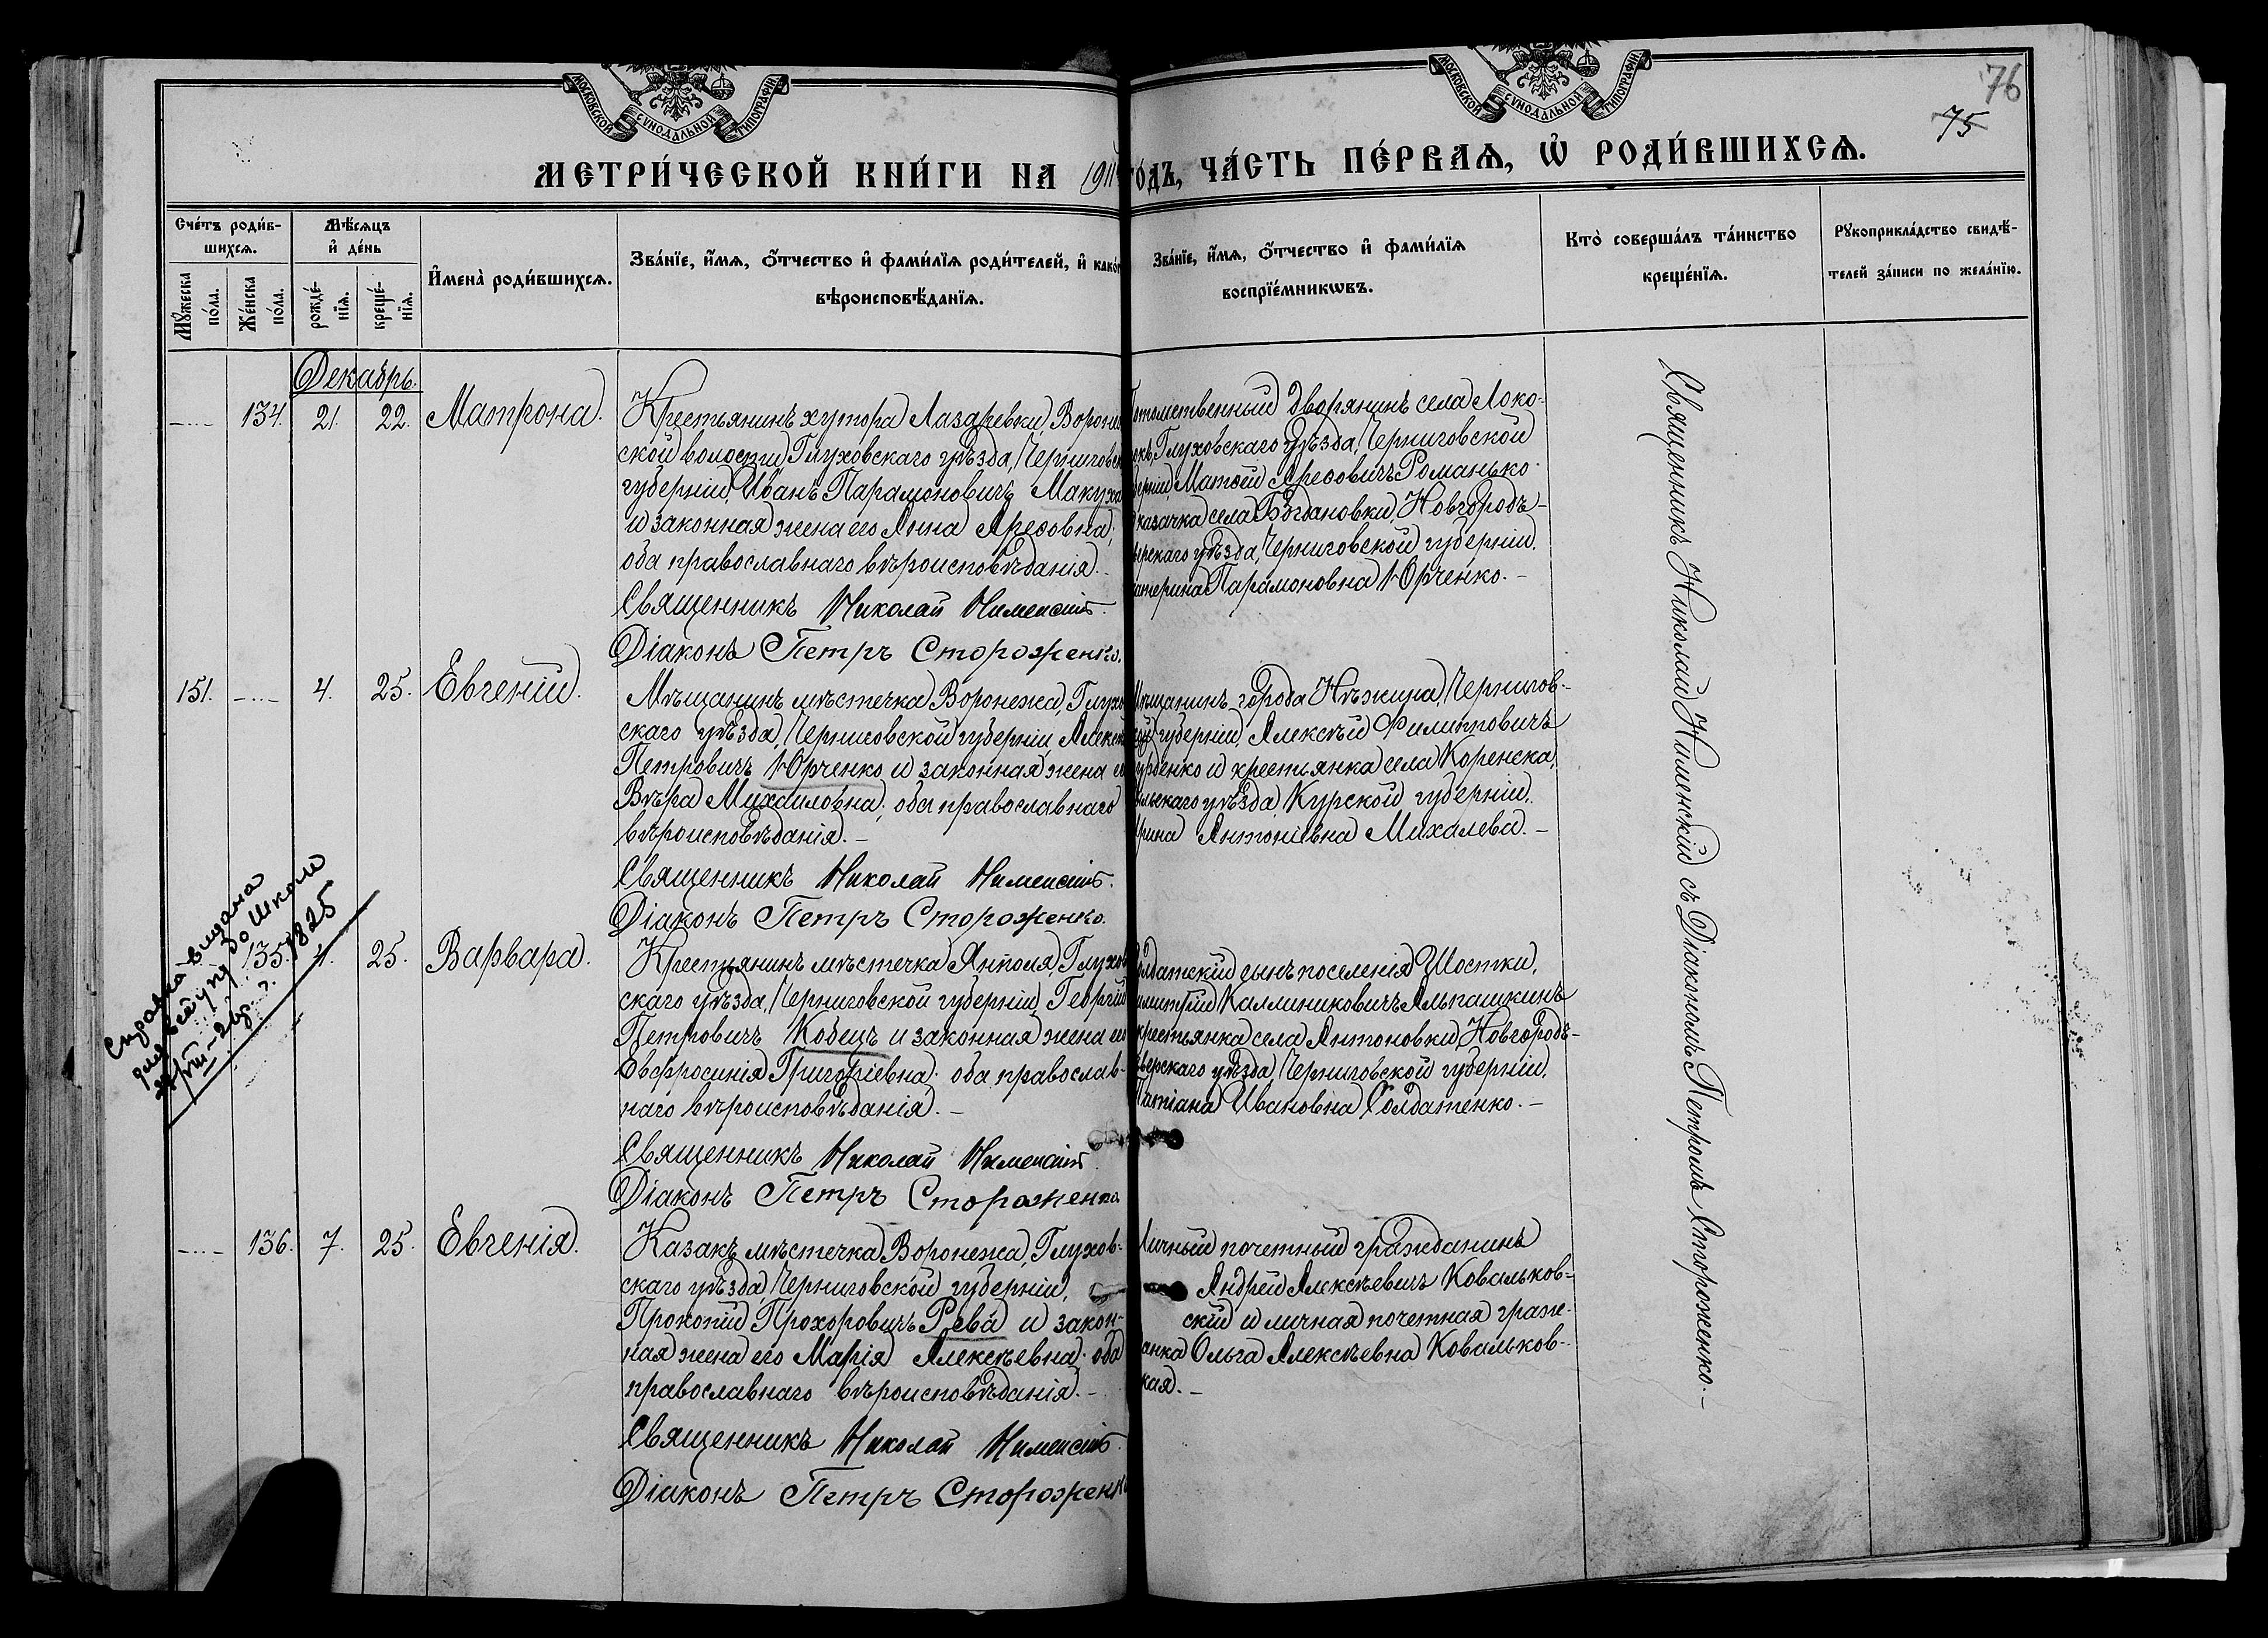 МОСКОВСКОЙ СѴНОДАЛЬНОЙ ТИПОГРАФІИ
МОСКОВСКОЙ СѴНОДАЛЬНОЙ ТИПОГРАФІИ
76
75
МЕТРИ́ЧЕСКОЙ КНИ́ГИ НА 191
го́дъ, ЧА́СТЬ ПЕ́РВАѦ, Ѡ҆ РОДИ́ВШИХСѦ.
Сче́тъ роди́в-
шихсѧ.
Мѣ́сѧцъ
и҆ де́нь
Мꙋ́жеска
по́ла.
Же́нска
по́ла.
рожде́-
нїѧ.
креще́-
нїѧ.
И҆мена̀ роди́вшихсѧ.
Зва́нїе, и҆́мѧ, ѻ҆́тчество и҆ фами́лїѧ роди́телей, и҆ како́
вѣроисповѣ́данїѧ.
Зва́нїе, и҆́мѧ, ѻ҆́тчество и҆ фами́лїѧ
воспрїе́мникѡвъ.
Кто̀ соверша́лъ та́инство
креще́нїѧ.
Рꙋкоприкла́дство свидѣ́-
телей за́писи по жела́нїю.
Декабрь.
134. 21. 22. Матрона.
Крестьянинъ хутора Лазаревки, Вороне
ской волости, Глуховскаго уѣзда, Черниговск
губерніи, Иванъ Парамоновичъ Макуха
и законная жена его Анна Ареѳовна;
оба православнаго вѣроисповѣданія. -
Священникъ Николай Нименскій.
Діаконъ Петръ Стороженко.
отомственный дворянинъ села Локо-
окъ, Глуховскаго уѣзда, Черниговской
берніи, Матѳій Ареѳовичъ Романько
казачка села Богдановки, Новгородъ-
ерскаго уѣзда, Черниговской губерніи,
атерина Парамоновна Юрченко. -
151. 4. 25. Евгеній.
Мѣщанинъ мѣстечка Воронежа, Глухо
скаго уѣзда, Черниговской губерніи, Алекс
Петровичъ Юрченко и законная жена е
Вѣра Михаиловна; оба православнаго
вѣроисповѣданія. -
Священникъ Николай Нименскій.
Діаконъ Петръ Стороженко.
ѣщанинъ города Нѣжина, Чернигов-
кой губерніи, Алексѣй Филипповичъ
урбенко и крестьянка села Коренска,
ыльскаго уѣзда, Курской губерніи,
рина Антоніевна Михалева. -
135. 4. 25. Варвара.
Справка видана
для вступу до школи
1825
Крестьянинъ мѣстечка Янполя, Глухов
скаго уѣзда, Черниговской губерніи, Георгій
Петровичъ Кобецъ и законная жена ег
Евфросинія Григоріевна; оба православ-
наго вѣроисповѣданія. -
Священникъ Николай Нименскій.
Діаконъ Петръ Стороженко
олдатскій сынъ поселенія Шостки,
имитрій Каллиниковичъ Альпашкинъ
крестьянка села Антоновки, Новгородъ-
верскаго уѣзда, Черниговской губерніи,
Татіана Ивановна Солдатенко. -
136. 7. 25. Евгенія.
Казакъ мѣстечка Воронежа, Глухов-
скаго уѣзда, Черниговской губерніи,
Прокопій Прохоровичъ Рева и закон-
ная жена его Марія Алексѣевна; оба
православнаго вѣроисповѣданія. -
Священникъ Николай Нименскій.
Діаконъ Петръ Стороженко
Личный почетный гражданинъ
Андрей Алексѣевичъ Ковальков-
скій и личная почетная граж-
анка Ольга Алексѣевна Ковальков-
кая. -
Священникъ Николай Нименскій съ Діакономъ Петромъ Стороженко. -